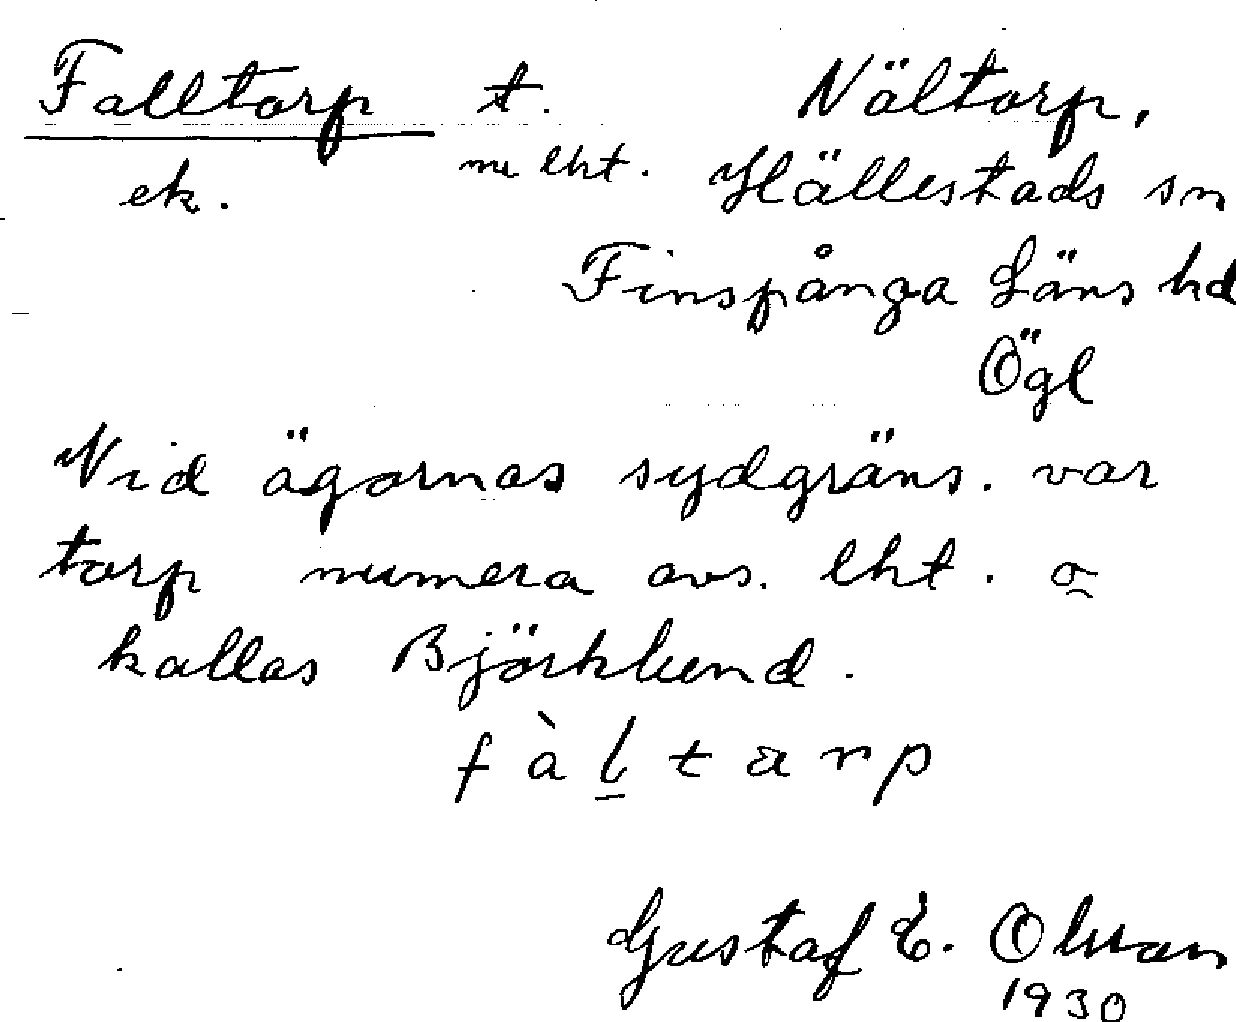 Falltorp t. Nältorp,
ek. nu lht. Hällestads sn
Finspånga Läns hd
Ögl
Vid ägornas sydgräns. var
torp numera avs. lht. o
kallas Björklund.
fàltarp
Gustaf E. Olsson
1930